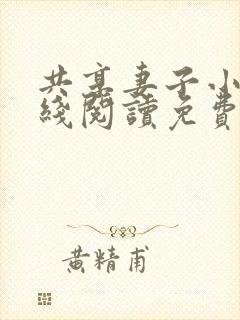 共享妻子小
綫閱讀免費
黃精甫